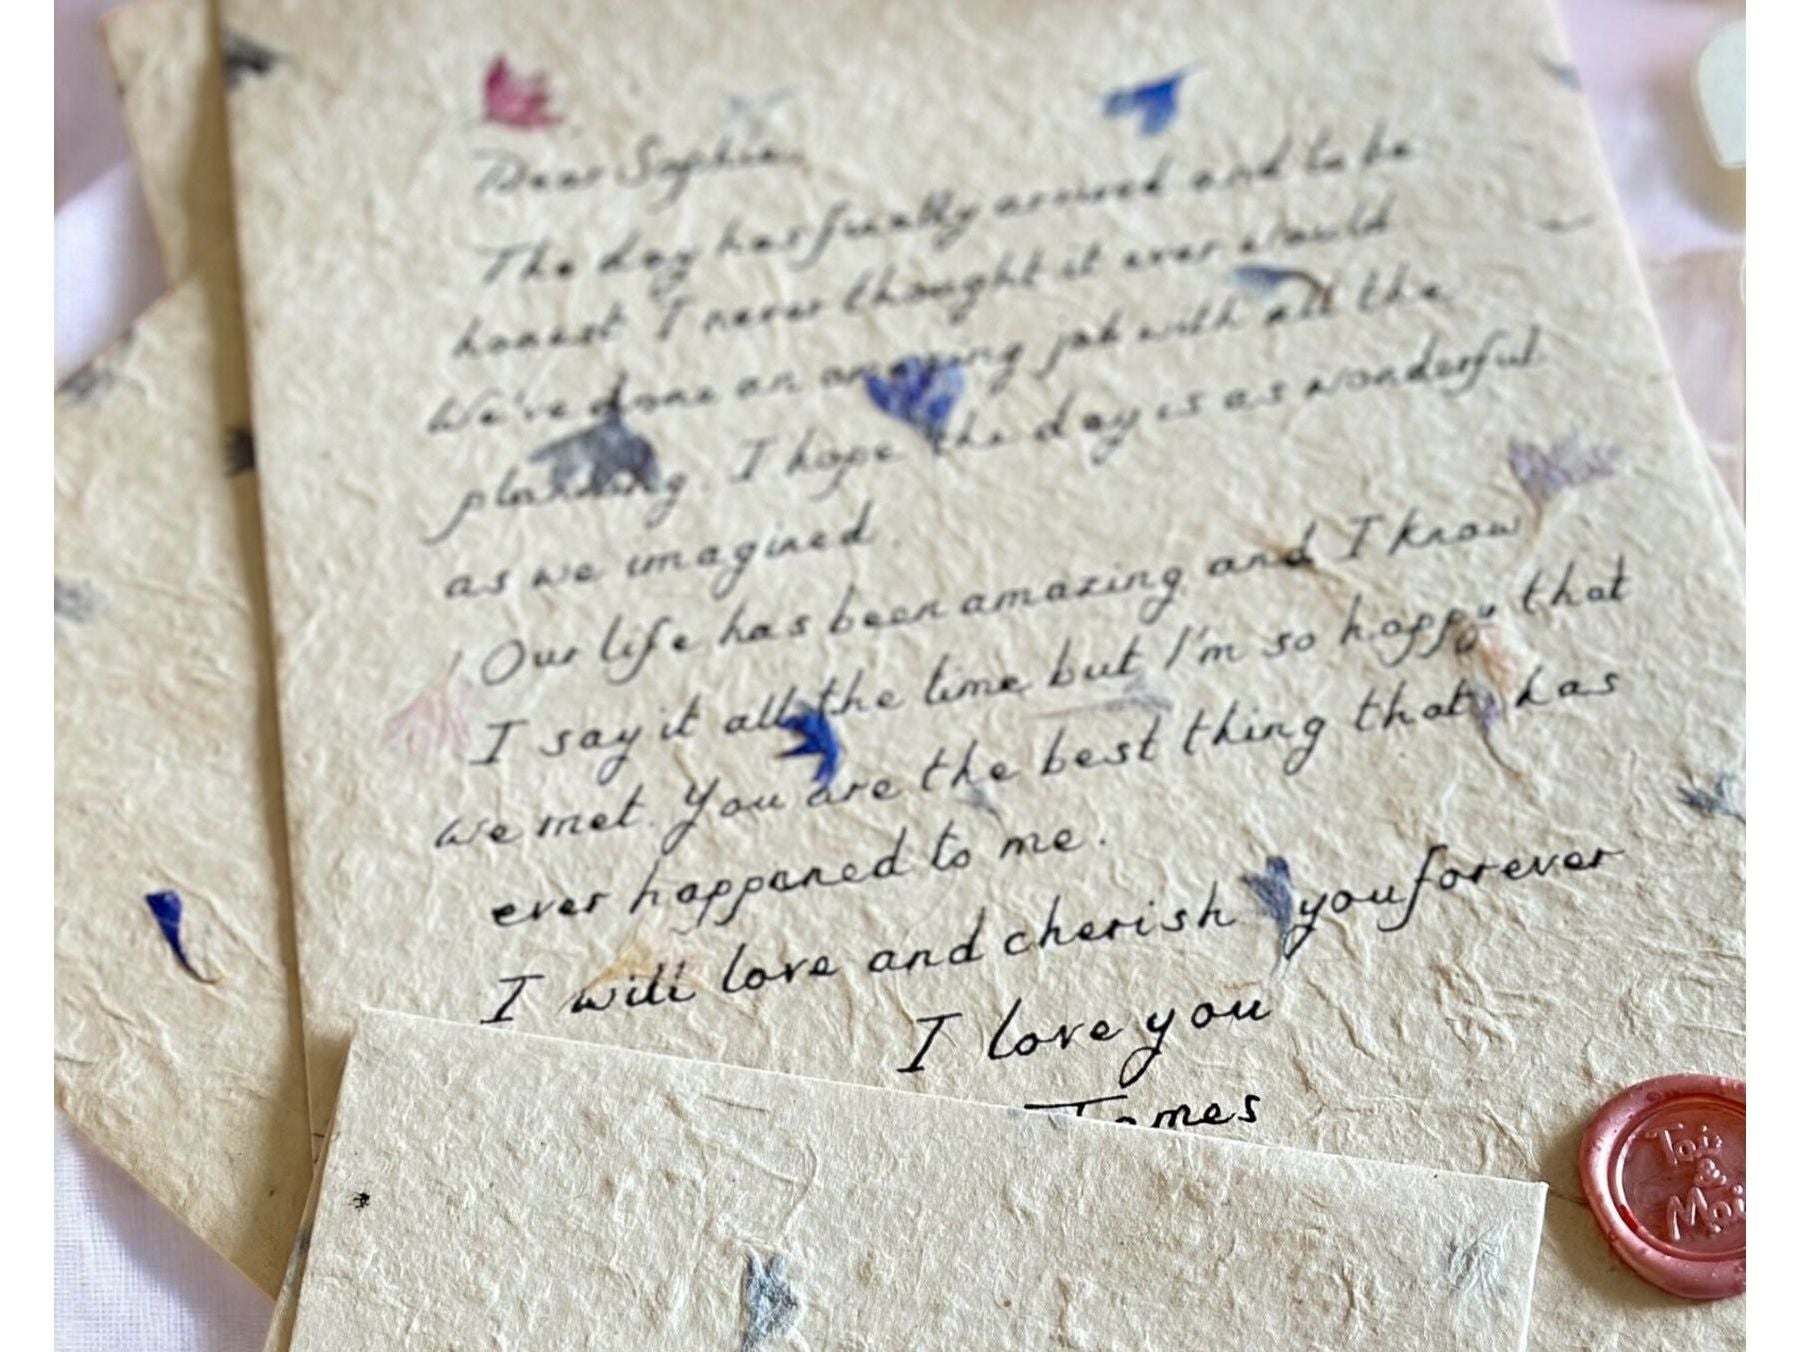 Dear Sophie
The day has finally arrived and to be
honest I never thought it ever would
We've done an amazing job with all the
planning. I hope the day is as wonderful
as we imagined.
Our life has been amazing and I know
I say it all the time but I'm so happy that
we met. You are the best thing that has
ever happened to me.
I will love and cherish you forever
I love you
James
Toi
&
Moi